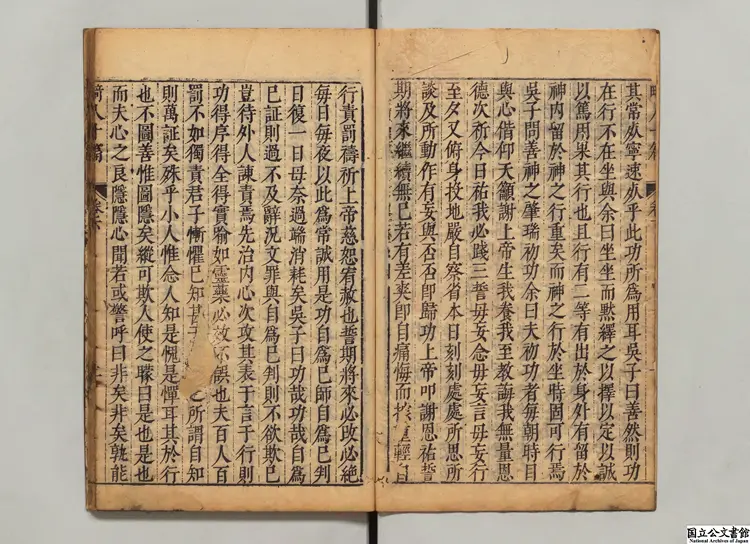 其常処寧速処乎此功所爲用耳吳子曰善然則功
在行不在坐與余曰坐坐而黙繹之以擇以定以誠
以篤用果其行也且行有二等有出於身外有留於
神内留於神之行重矣而神之行於坐時固可行焉
吳子問善神之肇瑞初功余曰夫初功者每朝時目
與心偕仰天籲謝上帝生我養我至教誨我無量恩
德次祈今日祐我必踐三誓毋妄念毋妄言毋妄行
至夕又俯身投地嚴自察省本日刻刻處處所思所
談及所動作有妄與否否即歸功上帝叩謝恩祐誓
期將來繼續無已若有差爽即自痛悔而
行責罰禱祈上帝慈恕宥赦也誓期將來必改必絶
每日每夜以此爲常誠用是功自爲已師自爲已判
日復一日毋奈過端消耗矣吳子曰功哉功哉自爲
已証則過不及辭況文罪與自爲已判則不欲欺已
豈待外人諫責焉先治内心次攻其表于言于行則
功得序得全得實驗如靈藥必效不誤也夫百人百
罰不如獨責君子慚懼已知 之所謂自知
則萬証矣殊乎小人惟念人知是愧是憚耳其於行
也不圖善惟圖隱矣縱可欺人使之矇曰是也是也
而夫心之良隱隱心聞若或警呼曰非矣非矣孰能
畸人十篇
卷六
国立公文書館
National Archives of Japan